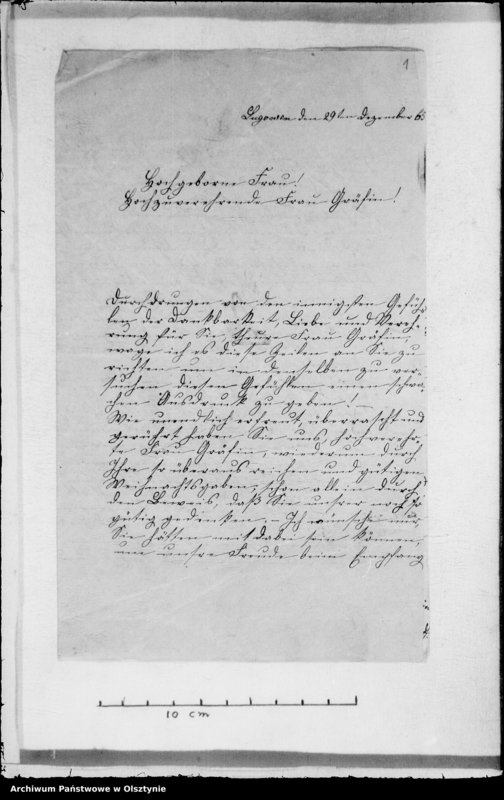 1
den 29ten Dezember 65
Hochgeborne Frau!
Hochzuverehrende Frau Gräfin!
Durchdrungen von den innigsten Gefüh-
len der Dankbarkeit, Liebe und Vereh-
rung für Sie, theure Frau Gräfin,
wage ich es diese Zeilen an Sie zu
richten um in denselben zu ver-
suchen diesen Gefühlen einen schwa-
chen Ausdruck zu geben! —
Wie unendlich erfreut, überrascht und
gerührt haben Sie uns, hochverehr-
te Frau Gräfin, wiederum durch
Ihre so überaus reichen und gütigen
Weihnachtsgaben, schon allein durch
den Beweis, daß Sie unsrer noch so
gütig gedenken. — Ich wünsche nur
Sie hätten mit dabei sein können,
um unsre Freude beim Empfang
10 cm
Archiwum Państwowe w Olsztynie